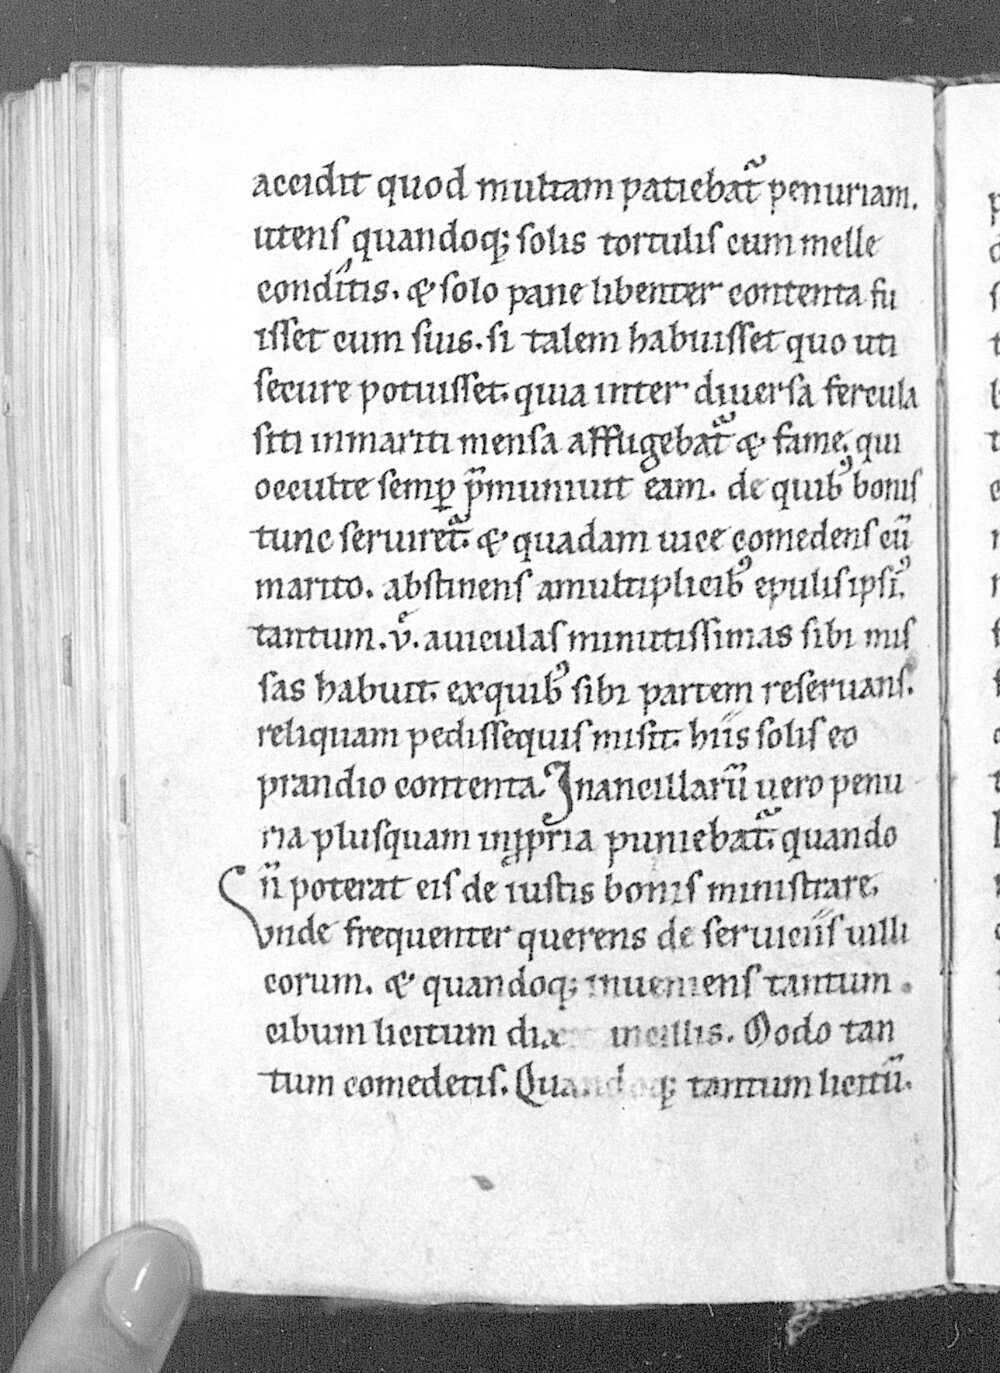 accidit quod multam patiebat᷑ penuriam.
utens quandoqꝫ solis tortulis cum melle
conditis. & solo pane libenter contenta fu
isset cum suis. si talem habuisset quo uti
secure potuisset. quia inter diuersa fercula
siti in mariti mensa affugebat᷑ & fame. qui
occulte semꝑ p̄muniuit eam. de quibꝰ bonis
tunc seruiret᷑. & quadam uice comedens cū
marito. abstinens a multiplicibꝰ epulis ipsiꝰ.
tantum .v. auiculas minutissimas sibi mis
sas habuit. ex quibꝰ sibi partem reseruans.
reliquam pedissequis misit. hiis solis eo
prandio contenta. In ancillarū uero penu
ria plus quam in ꝓpria puniebat᷑. quando
ñ poterat eis de iustis bonis ministrare.
vnde frequenter querens de seruiciis uilli
corum. & quandoqꝫ inueniens tantum
cibum licitum dix incillis. Modo tan
tum comedetis. Quandoqꝫ tantum licitū.